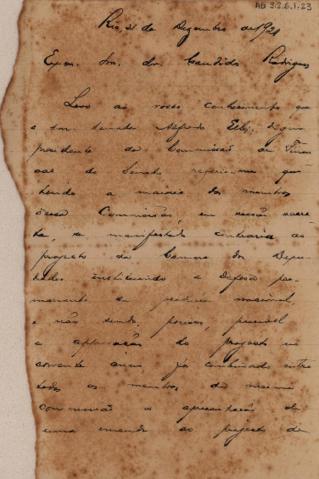 AB 3.2.6.1.23
Rio, 21 de Dezembro de 1921
Exmo. Snr. dr. Candido Rodrigues
Levo ao vosso conhecimento que
o snr. senador Alfredo Ellis, digno
presidente da Commissão de Finan
ças do Senado
tendo a maioria dos membros
dessa Commissão, em sessão
manifestado contraria ao
projecto da Camara dos Depu
tados instituindo a Defesa per
manente da nacional
e não sendo porisso possivel
a approvação do projecto no
corrente anno já combinado entre
todos os membros da mesma
commissão a apresentação de
uma emenda ao projecto de